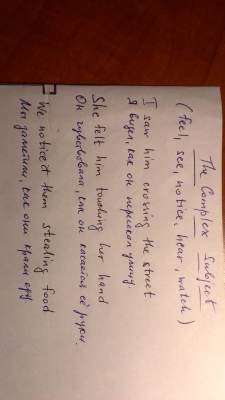 The Complex Subject
(feel, see, notice, hear, watch)
I saw him crossing the street
Я видел, как он пересекал улицу.
She felt him touching her hand
Он чувствовала, как он касался её руки.
We noticed them stealing food
Мы заметили, как они крали еду.